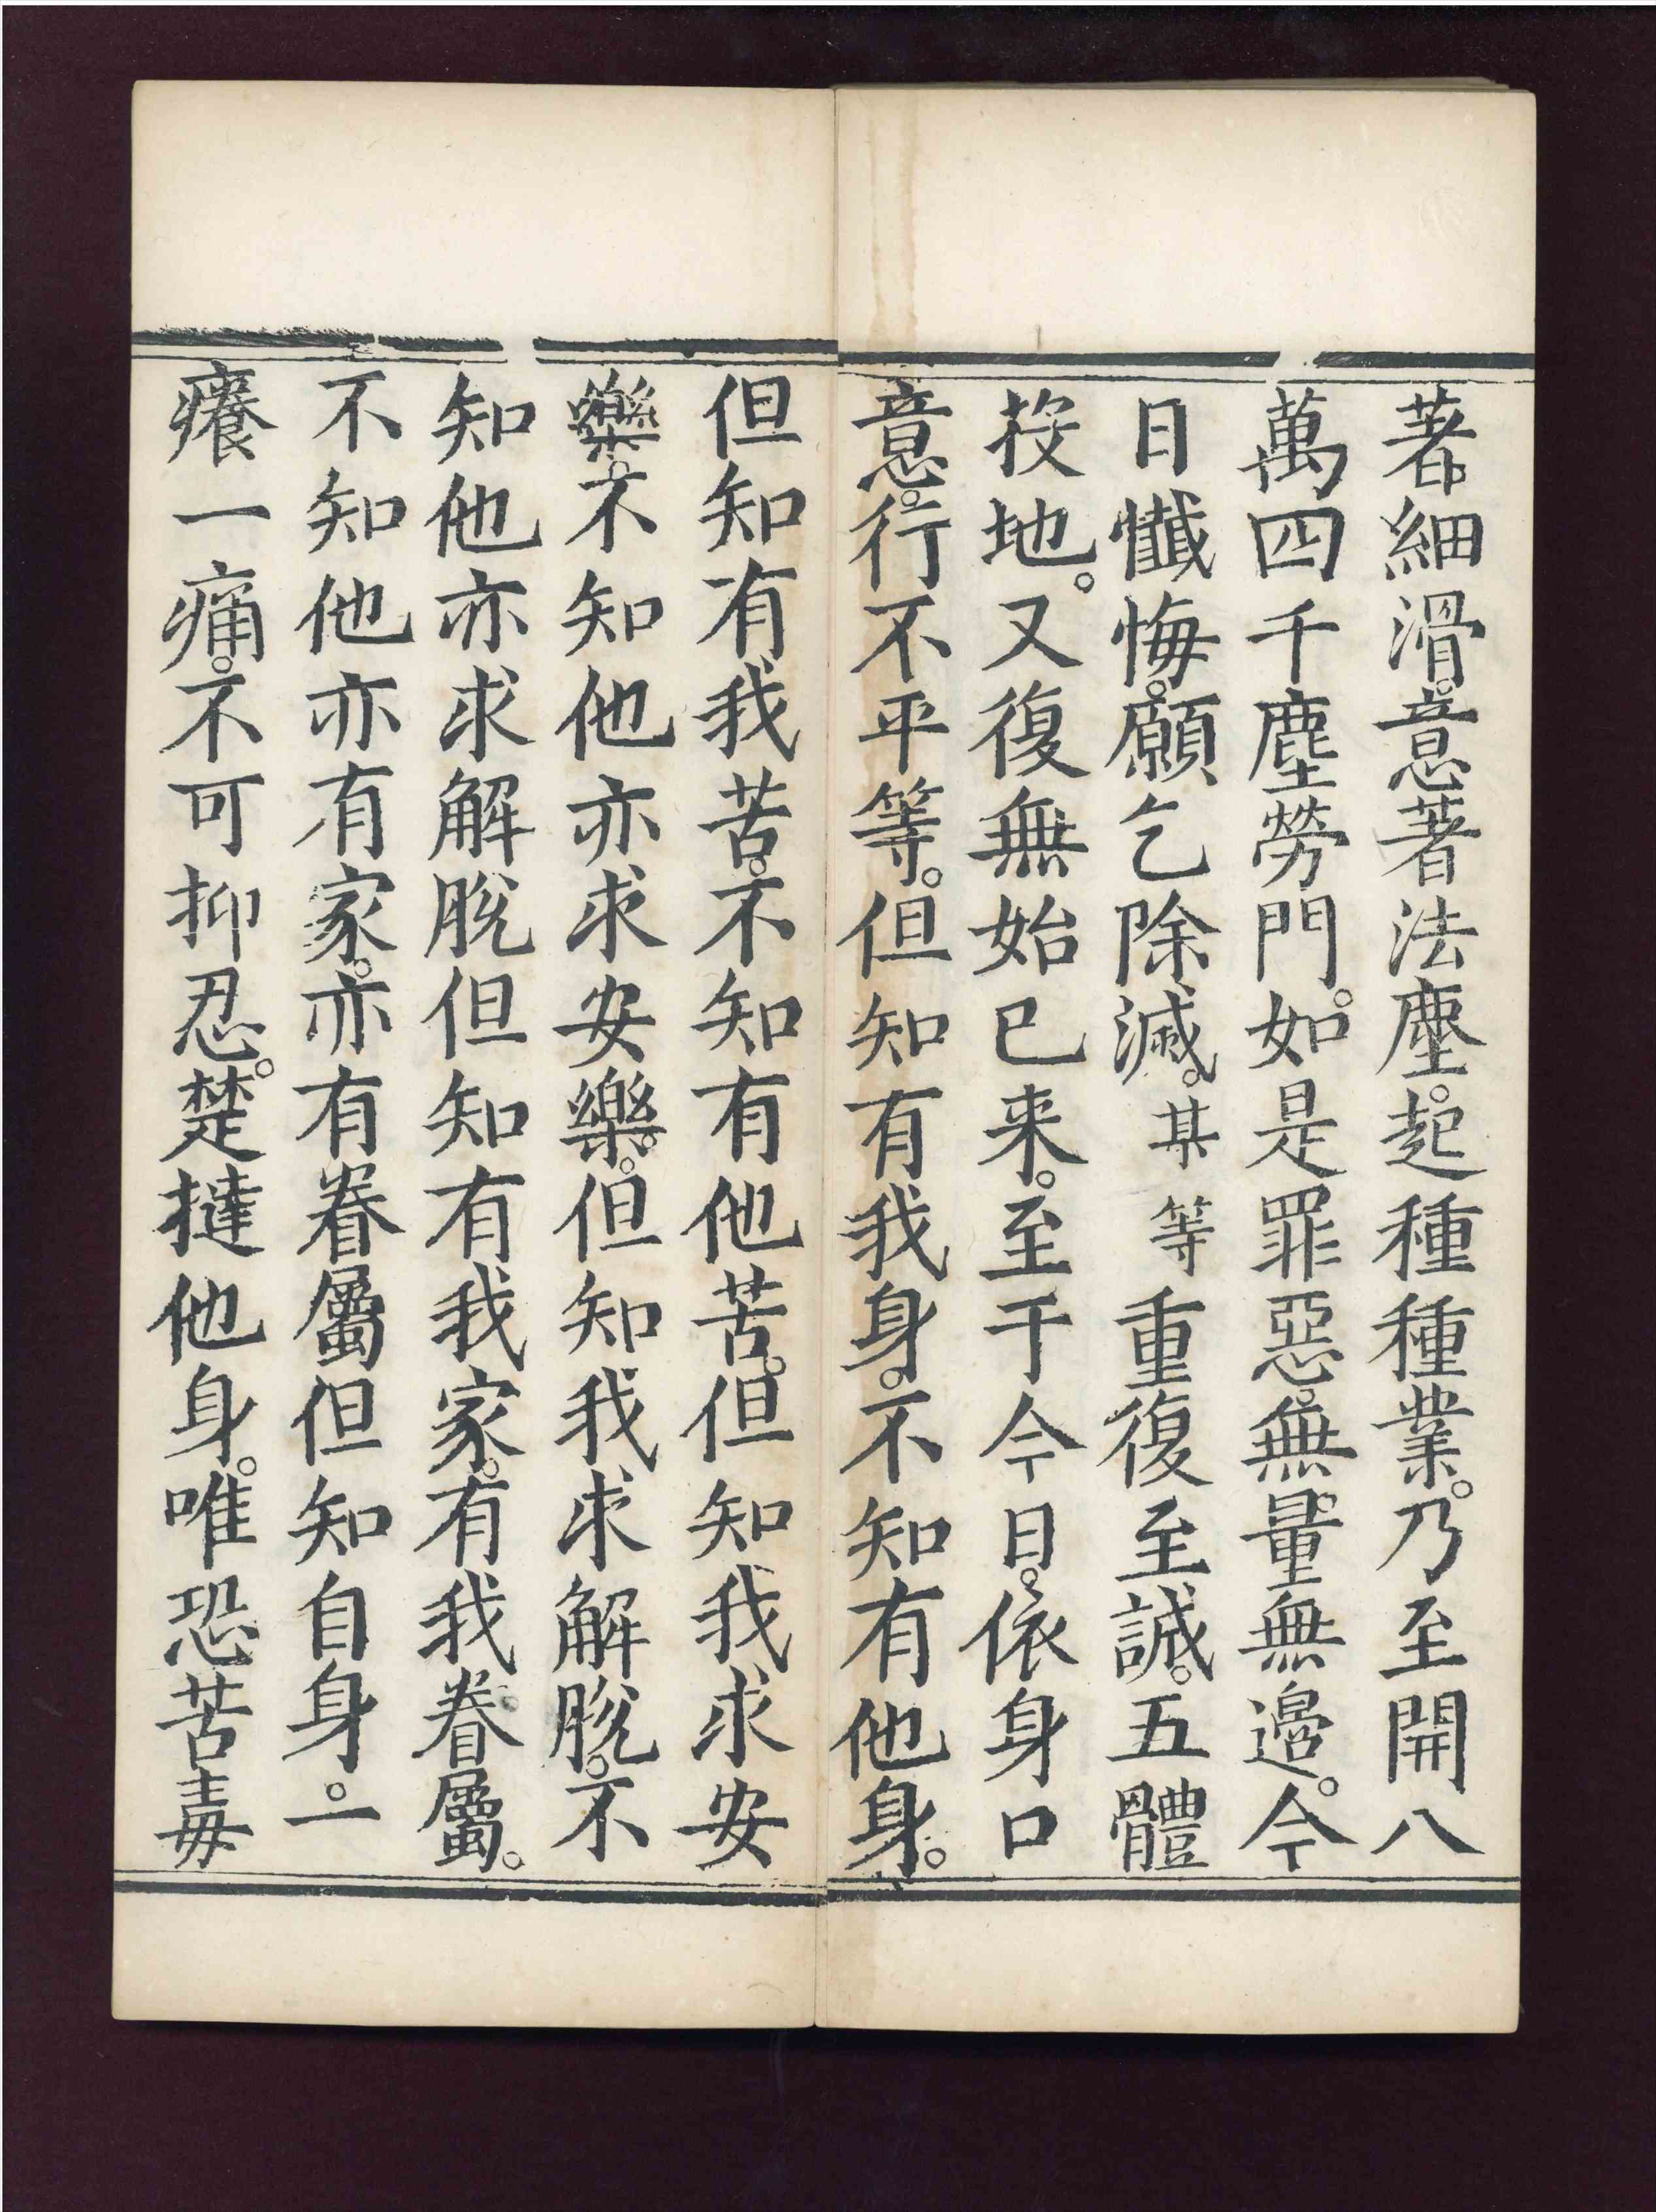 著細滑。意著法塵。起種種業。乃至開八
萬四千塵勞門。如是罪惡。無量無邊。今
日懺悔。願乞除滅。某等重復至誠。五體
投地。又復無始已来。至于今日。依身口
意。行不平等。但知有我身。不知有他身。
但知有我苦。不知有他苦。但知我求安
樂。不知他亦求安樂。但知我求解脫。不
知他亦求解脫但知有我家。有我眷屬。
不知他亦有家。亦有眷屬但知自身。一
癢一痛。不可抑忍。楚撻他身。唯恐苦毒